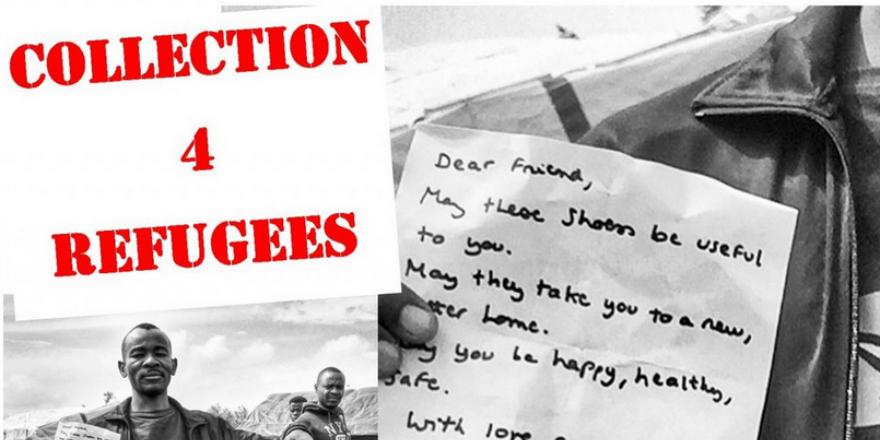 COLLECTION
4
REFUGEES
Dear Friend,
May these shoes be useful
to you.
May they take you to a new,
tter home.
y you be happy, healthy,
safe.
With love